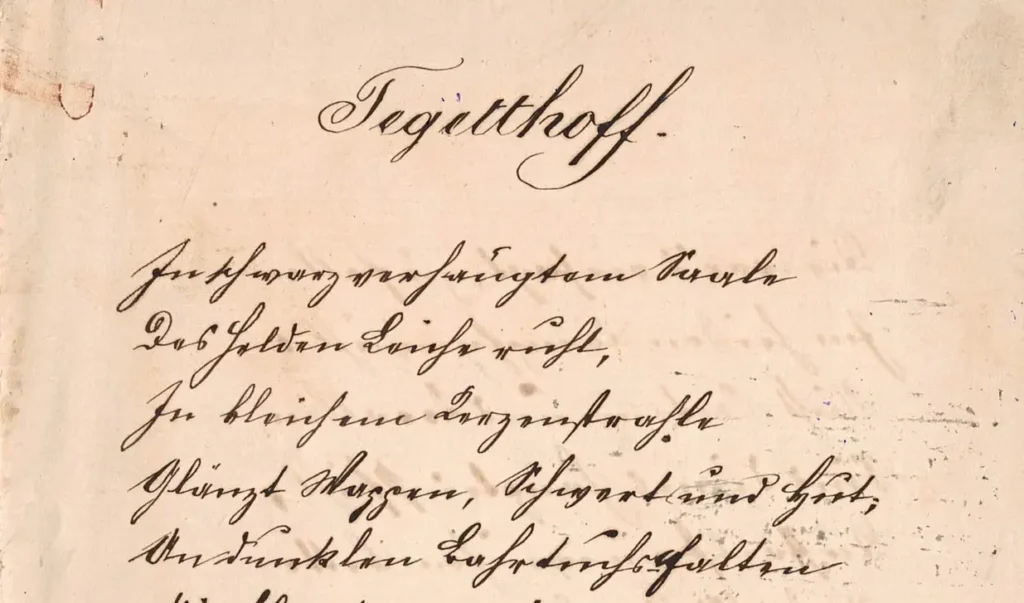 Tegetthoff.
In schwarzverhängtem Saale
Des Helden Leiche ruht,
In bleichem Kerzenstrahle
Glänzt Wappen, Schwert und Hut;
An dunklen Bahrtuchsfalten